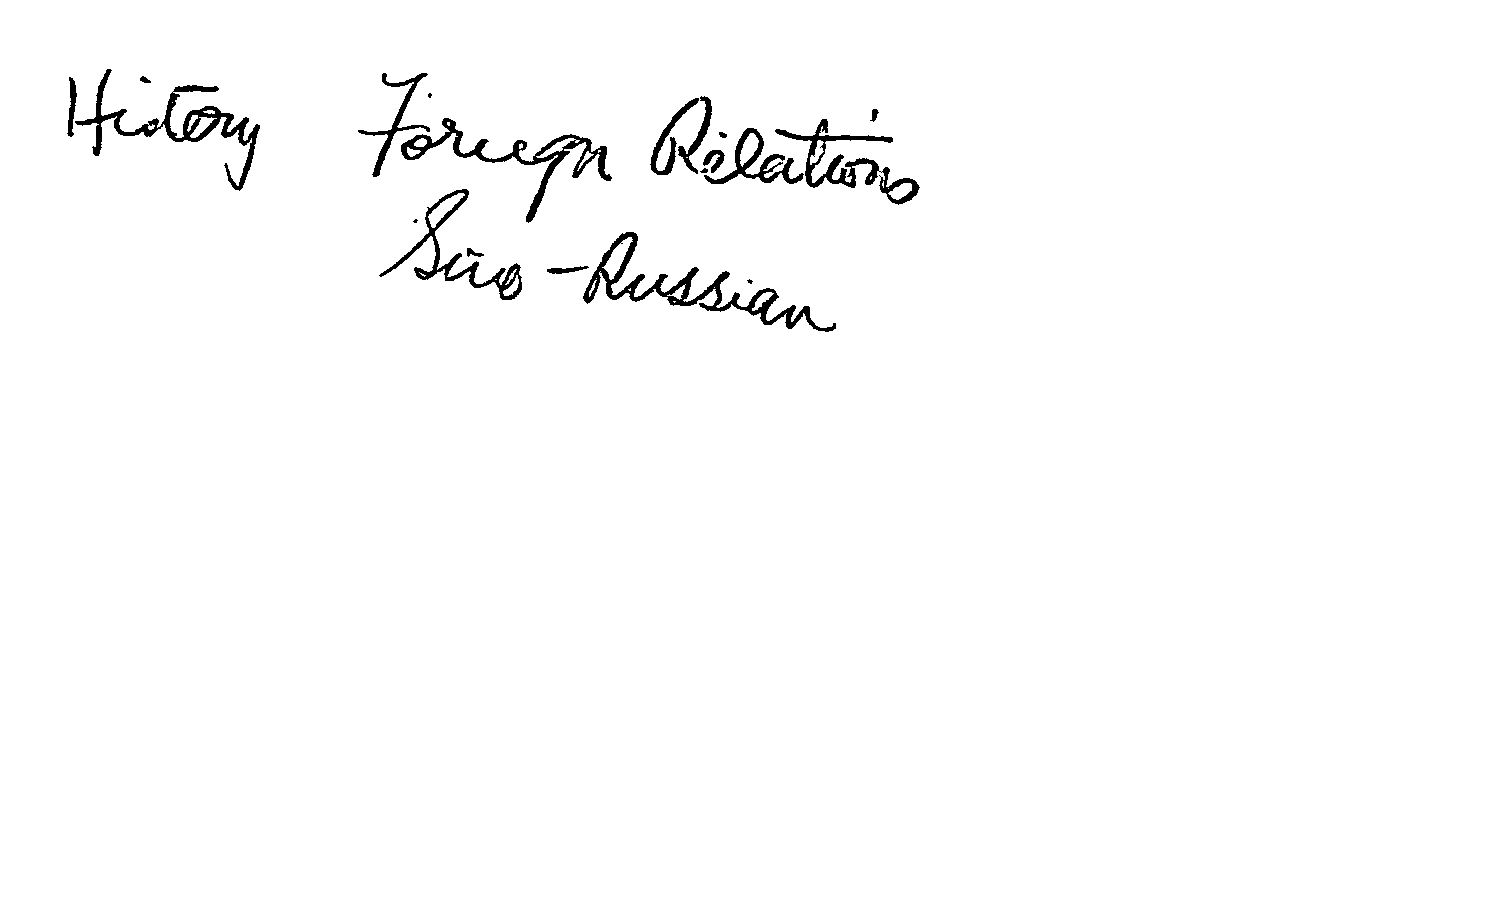 History Foreign Relations
Sino-Russian